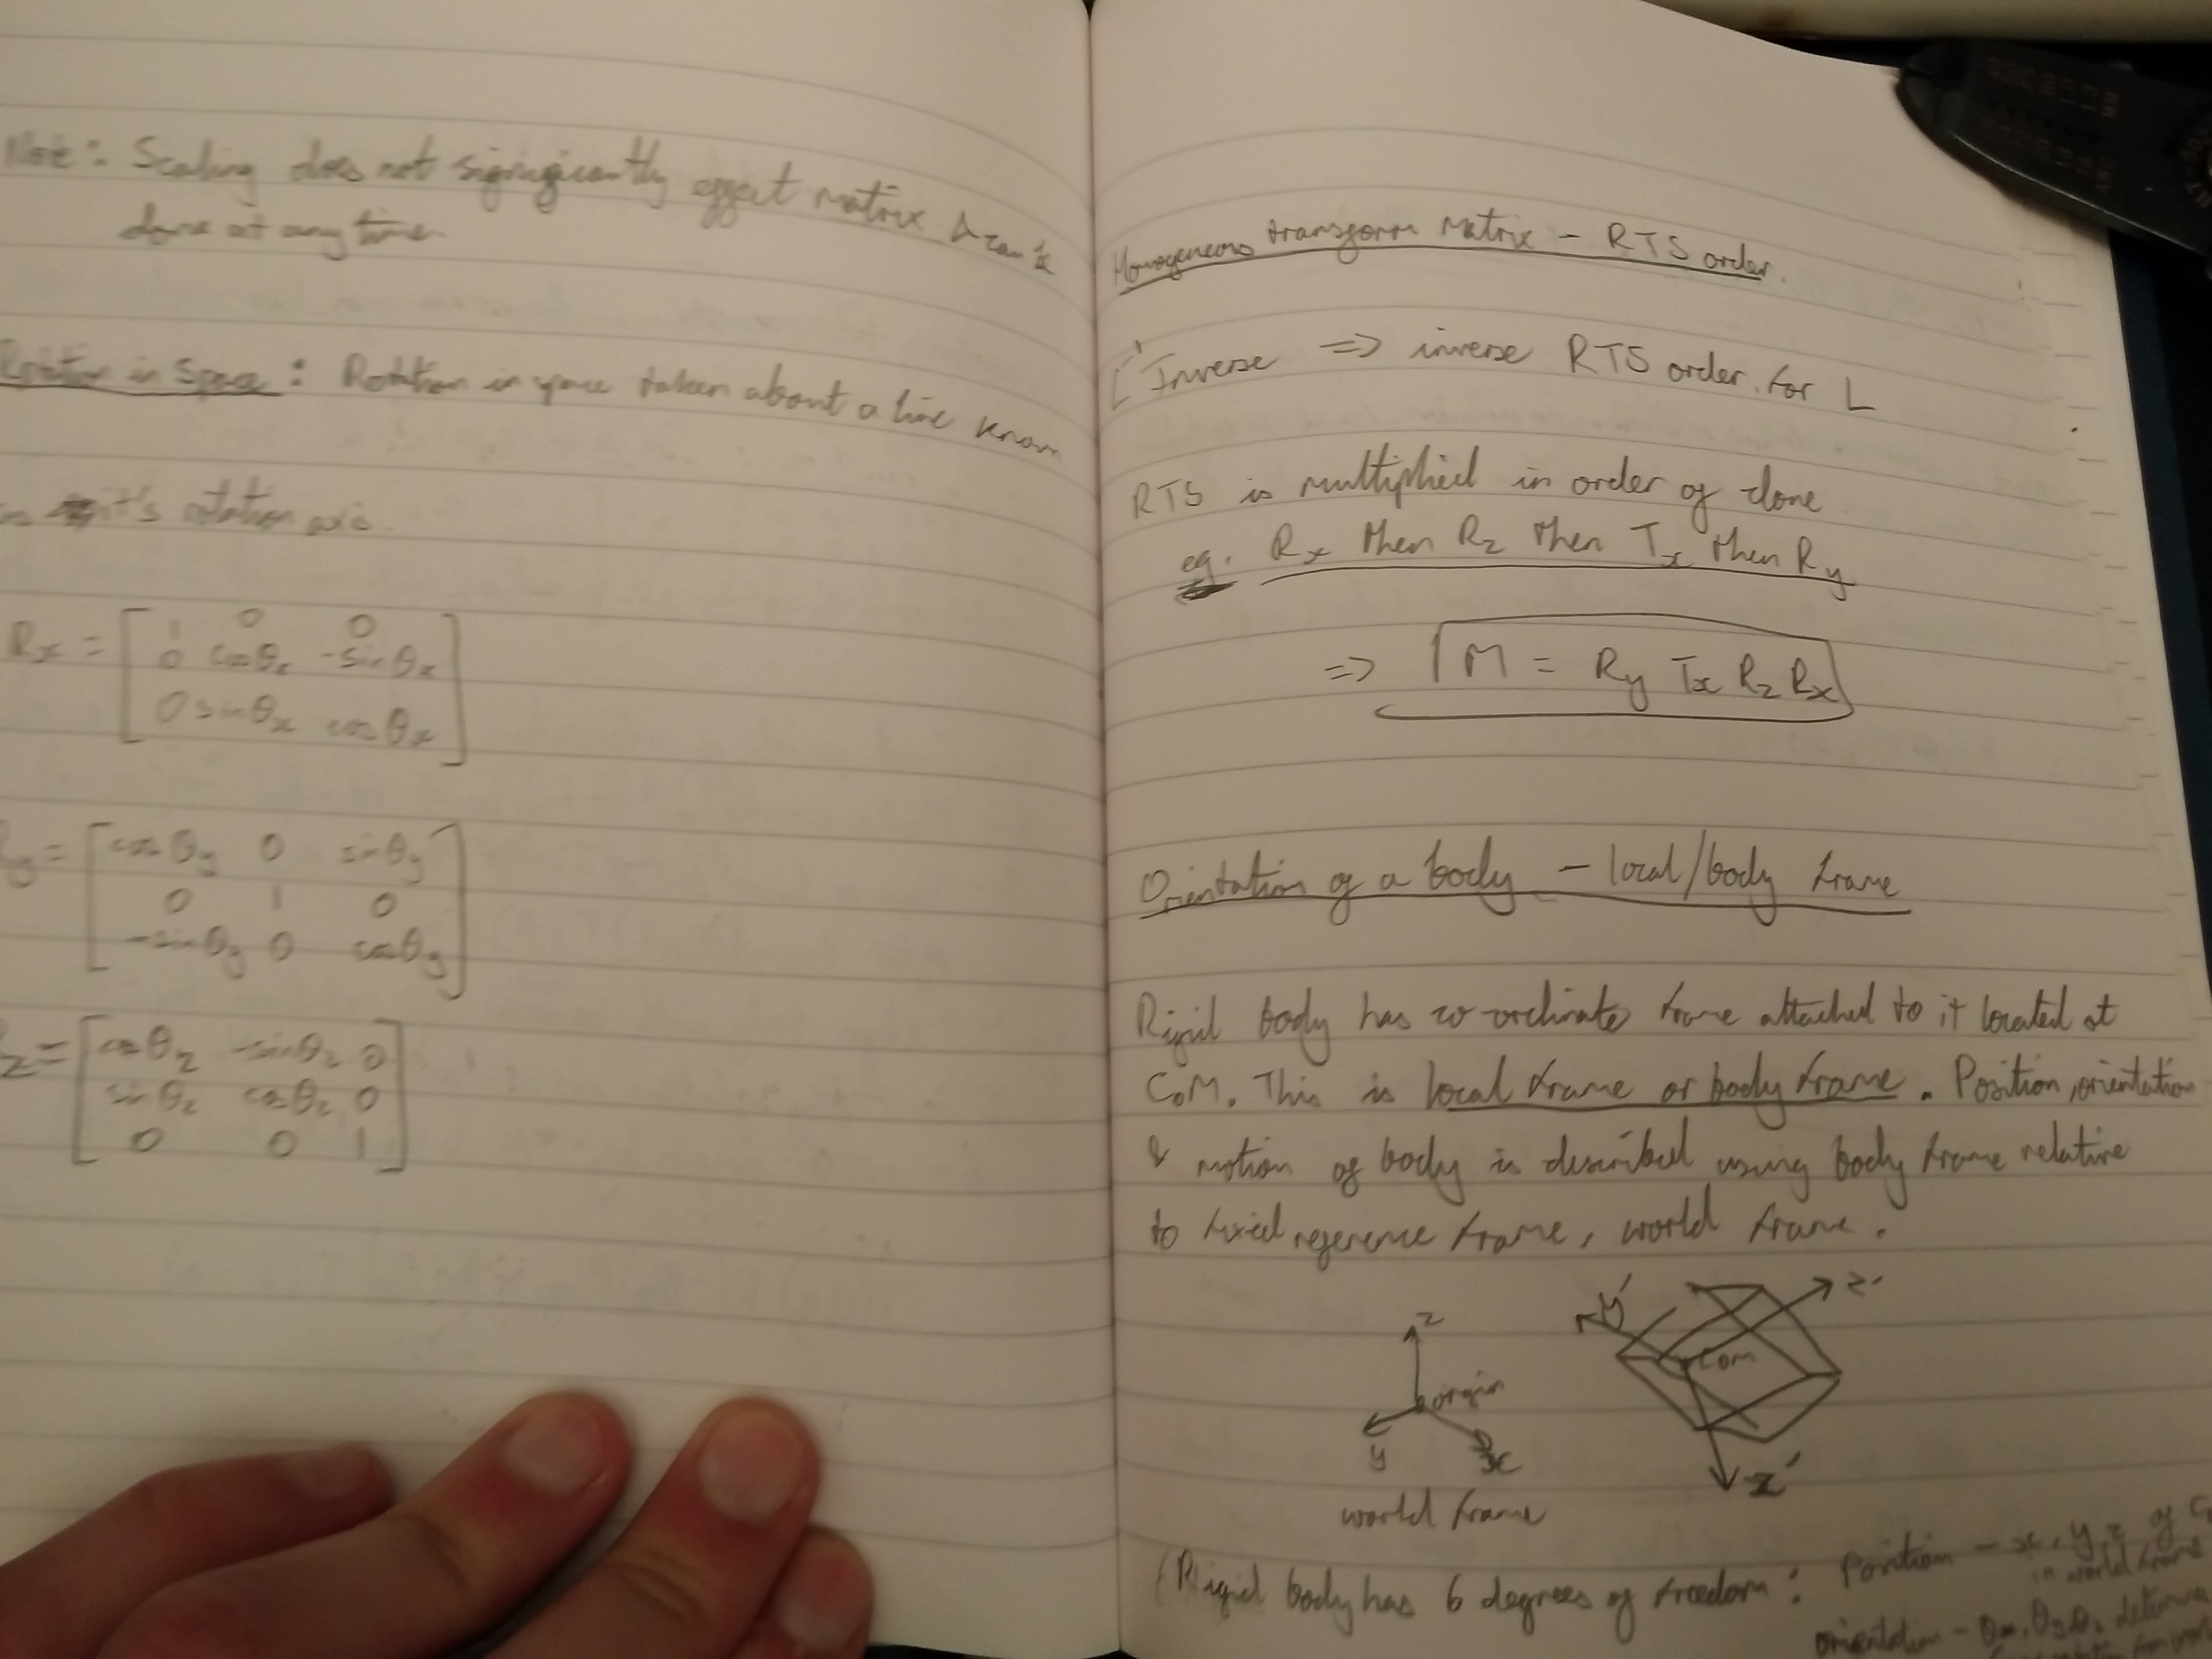 Note: Scaling does not significantly effect matrix & can be
done at any time.
Rotation in Space: Rotation in space taken about a line known
it's rotation axis
Rx = [ 1 0 0
0 cosθx -sinθx
0 sinθx cosθx ]
Ry = [ cosθy 0 sinθy
0 1 0
-sinθy 0 cosθy ]
Rz = [ cosθz -sinθz 0
sinθz cosθz 0
0 0 1 ]
Homogeneous transform Matrix - RTS order.
Inverse => inverse RTS order. for L
RTS is multiplied in order of done
eg. Rx then Rz then Tx then Ry
=> M = Ry Tx Rz Rx
Orientation of a body - local/body frame
Rigid body has co-ordinate frame attached to it located at
CoM. This is local frame or body frame. Position, orientation
& motion of body is described using body frame relative
to fixed reference frame, world frame.
z origin y x
world frame
y' z' Com x'
Rigid body has 6 degrees of freedom: Position - x, y, z of
in world frame
orientation - θx, θy, θz